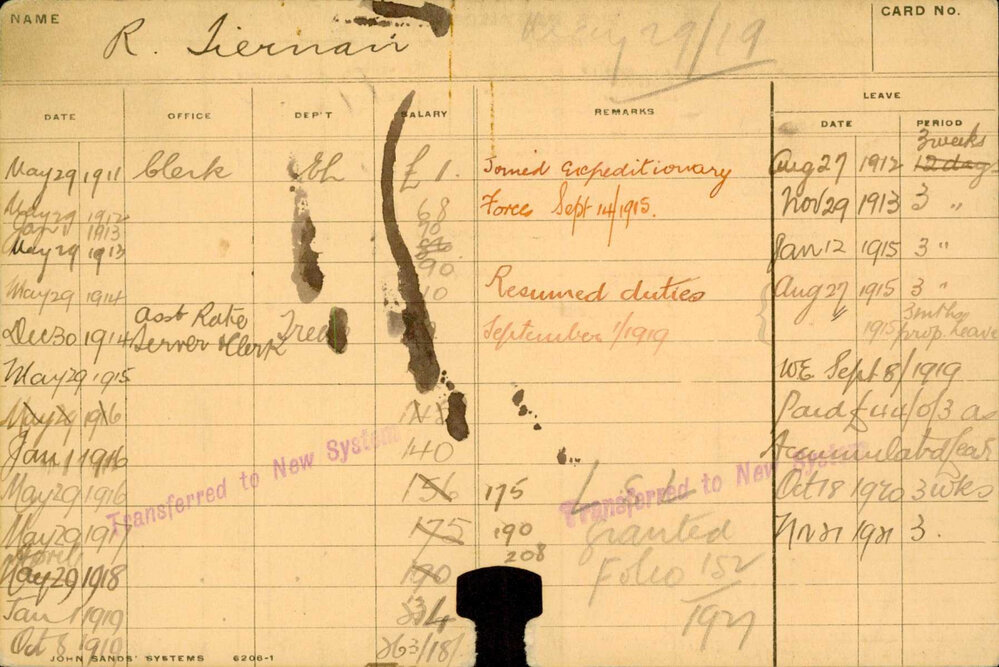 NAME
CARD No.
R. Tiernan
May 29/19
LEAVE
DATE OFFICE DEP'T SALARY REMARKS DATE PERIOD
3 weeks
May 29 1911 Clerk EL £ 1. Joined Expeditionary Aug 27 1912 12 days
May 29 1912 68 Force Sept 14/1915. Nov 29 1913 3 "
Jan 1 1913 70
May 29 1913 90 Jan 12 1915 3 "
May 29 1914 10 Resumed duties Aug 27 1915 3 "
Asst Rate 3 mths
Dec 30 1914 Server & Clerk Trea September 1/1919 1915 prop. leave
May 29 1915 WE Sept 8/1919
May 29 1916 148 Paid £44/0/3 as
Jan 1 1916 140 Accumulated leave
May 29 1916 156 175 L S L Oct 18 1920 3 wks
Transferred to New System
Transferred to New System
May 29 1917 175 190 granted Nov 21 1921 3.
208
May 29 1918 190 Folio 152
Jan 1 1919 234 1921
Oct 8 1919 263/18/
JOHN SANDS' SYSTEMS 6206-1